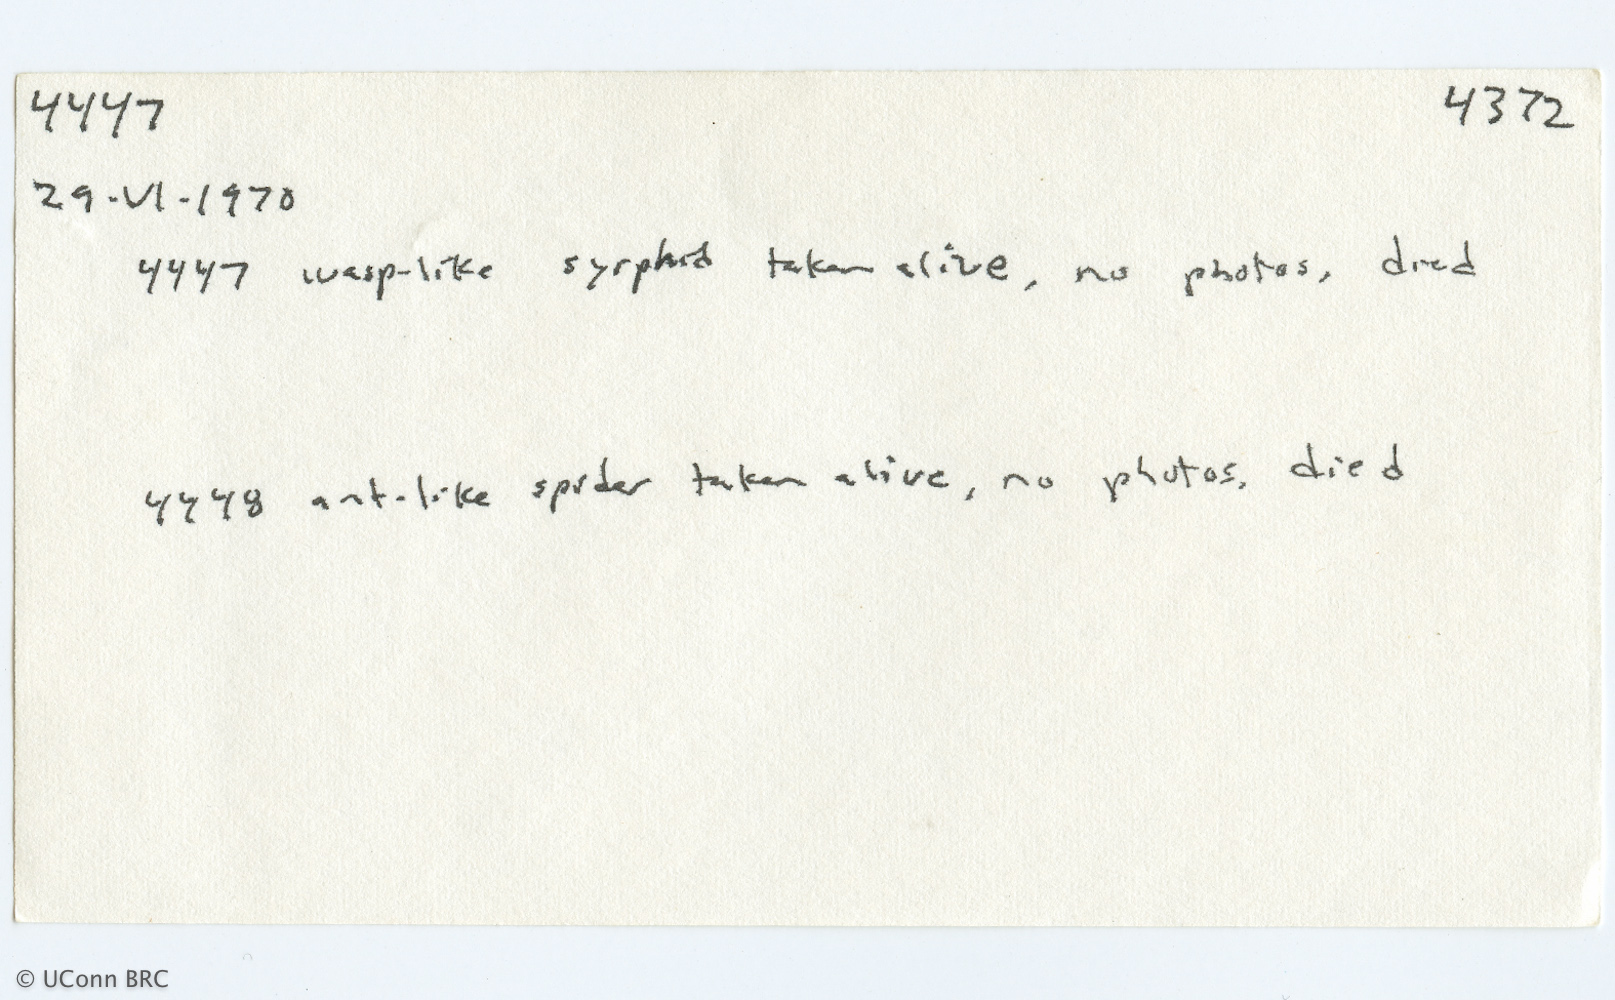 4447 4372
29-VI-1970
4447 wasp-like syrphid taken alive, no photos, died
4448 ant-like spider taken alive, no photos, died
© UConn BRC